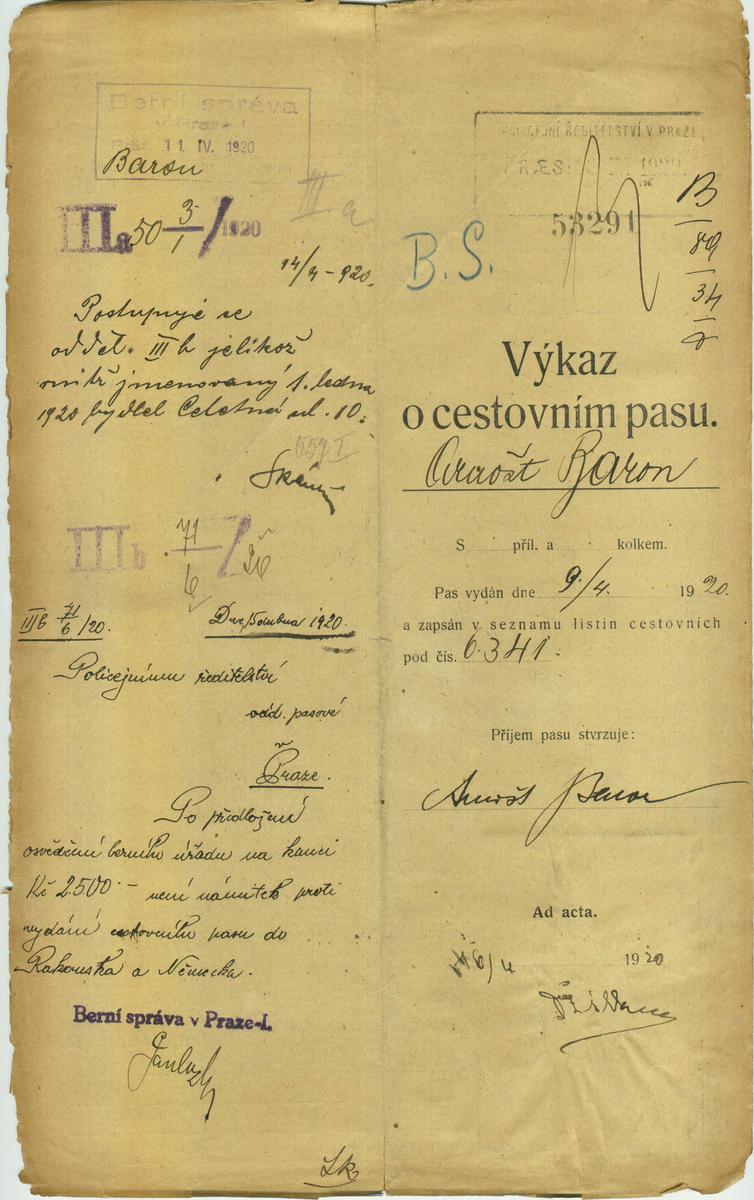 Berní správa
v Praze-I.
11. IV. 1920
Baron
IIIa 50 3/1 /1920
III a
14/4 - 920.
Postupuje se
odděl. III b jelikož
vnitř jmenovaný 1. ledna
1920 bydlel Celetná ul. 10.
557 I
III b 71/6
III b 71/6 /20.
Dne 15 dubna 1920.
Policejnímu ředitelství
odd. pasové
v
Praze.
Po předložení
osvědčení berního úřadu na kauci
Kč 2500·– není námitek proti
vydání cestovního pasu do
Rakouska a Německa.
Berní správa v Praze-I.
POLICEJNÍ ŘEDITELSTVÍ V PRAZE
PRES: 1920
53291
B
89
34
B. S.
Výkaz
o cestovním pasu.
Arnošt Baron
S příl. a kolkem.
Pas vydán dne 9./4. 1920.
a zapsán v seznamu listin cestovních
pod čís. 6341.
Příjem pasu stvrzuje:
Arnošt Baron
Ad acta.
16/4 1920